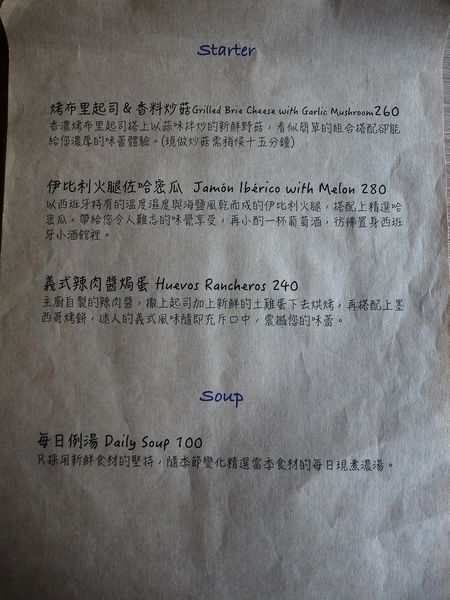 Starter
烤布里起司&香料炒菇Grilled Brie Cheese with Garlic Mushroom260
香濃烤布里起司搭上以蒜味拌炒的新鮮野菇，看似簡單的組合搭配卻能
給您濃厚的味蕾體驗。(現做炒菇需稍候十五分鐘)
伊比利火腿佐哈密瓜 Jamón Ibérico with Melon 280
以西班牙特有的溫度濕度與海鹽風乾而成的伊比利火腿，搭配上精選哈
密瓜，帶給您令人難忘的味覺享受，再小酌一杯葡萄酒，彷彿置身西班
牙小酒館裡。
義式辣肉醬焗蛋 Huevos Rancheros 240
主廚自製的辣肉醬，撒上起司加上新鮮的土雞蛋下去烘烤，再搭配上墨
西哥烤餅，迷人的義式風味隨即充斥口中，震撼您的味蕾。
Soup
每日例湯 Daily Soup 100
只採用新鮮食材的堅持，隨季節變化精選當季食材的每日現煮濃湯。